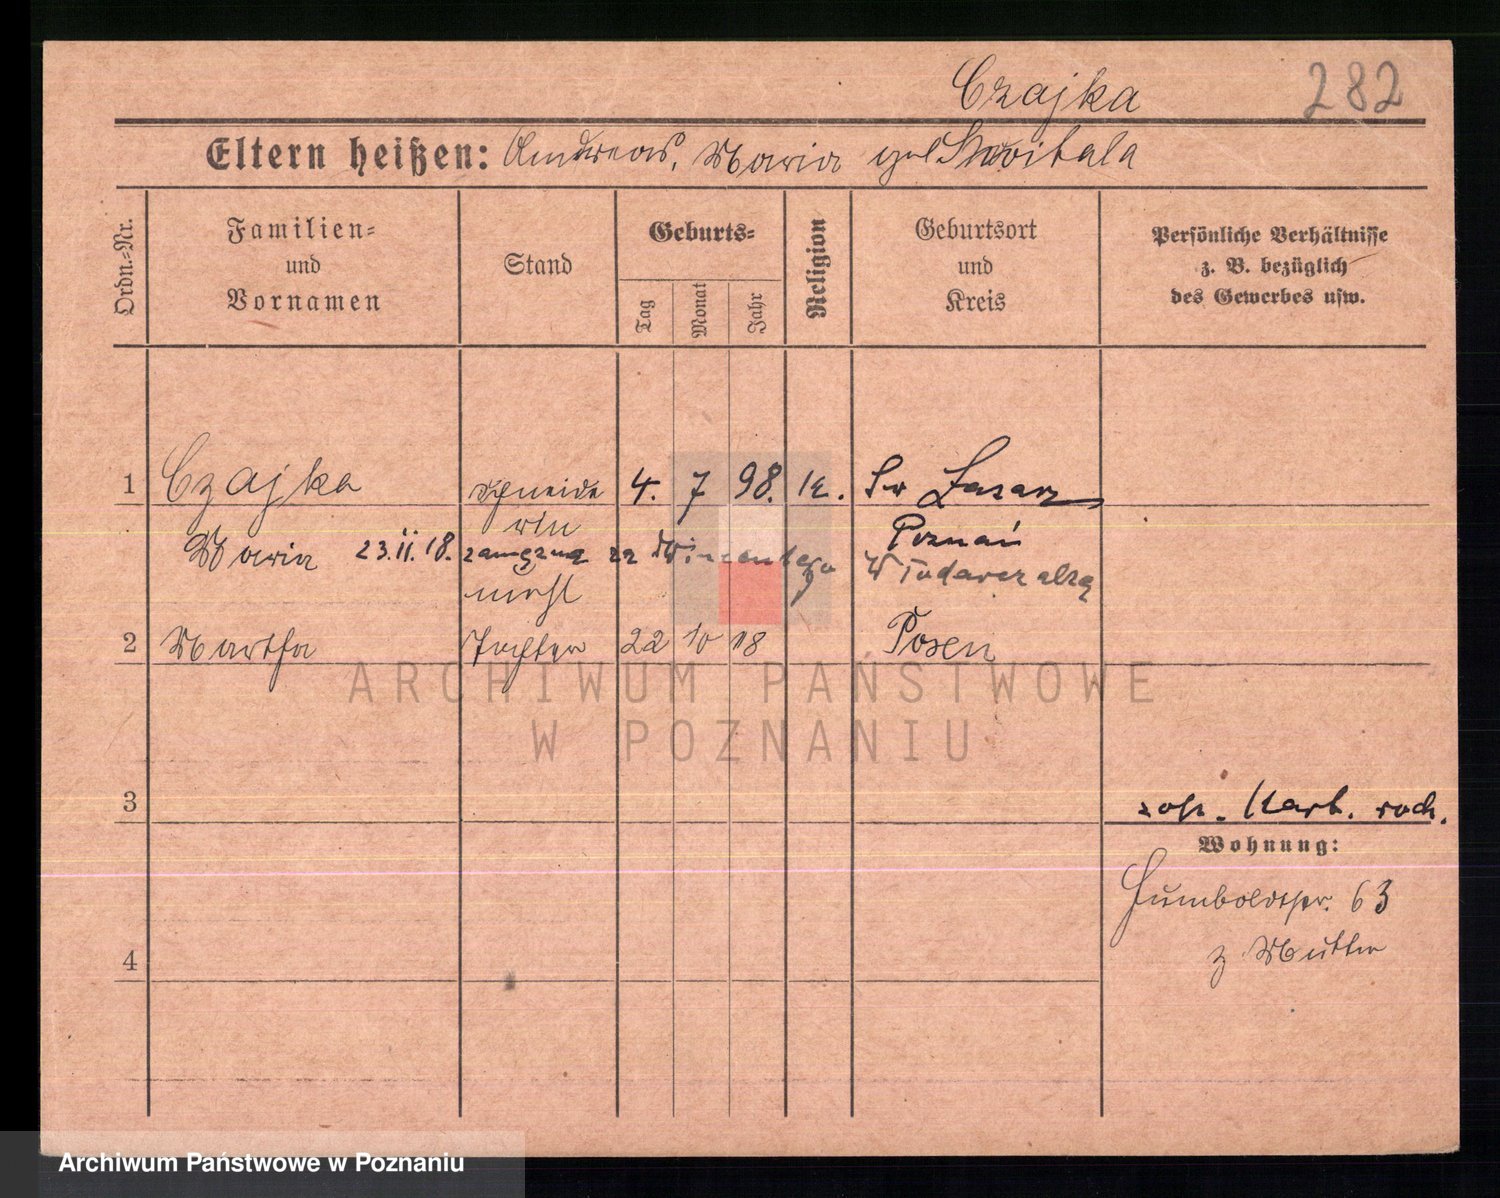 Czajka 282
Eltern heißen: Andreas, Maria geb Skwitala
Ordn.-Nr.
Familien- und Vornamen
Stand
Geburts-
Tag Monat Jahr
Religion
Geburtsort und Kreis
Persönliche Verhältnisse z. B. bezüglich des Gewerbes usw.
1 Czajka Schneide 4. 7 98. K. Sw Lazarz
rin Poznań
Maria 23.II.18. zamężna za Wincentego Włodarczaka
unehl
2 Martha Tochter 22 10 18 Posen
3
Karb. rod.
Wohnung:
Humboldtstr. 63
4 z Mutter
ARCHIWUM PAŃSTWOWE
W POZNANIU
Archiwum Państwowe w Poznaniu